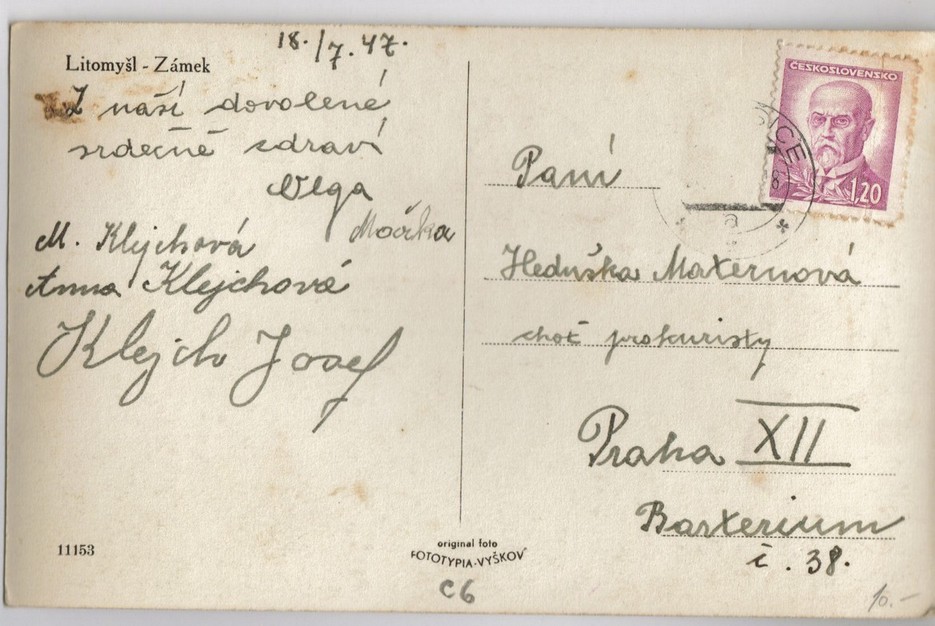 18./7.47.
Litomyšl - Zámek
Z naší dovolené
srdečně zdraví
Olga
Mařka
M. Klejchová
Anna Klejchová
Klejch Josef
11153
original foto
FOTOTYPIA-VYŠKOV
C6
ČESKOSLOVENSKO
1,20
Paní
Heduška Maternová
choť prokuristy
Praha XII
č. 38.
10.-